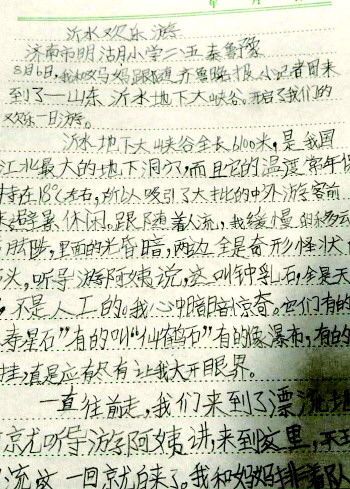 沂水欢乐游
济南市明湖小学二.五秦鲁豫
3月6日,我和妈妈跟随齐鲁晚报小记者团来
到了一山东沂水地下大峡谷,开启了我们的
欢乐一日游。
沂水地下大峡谷全长6100米,是我国
江北最大的地下洞穴,而且它的温度常年保
持在18℃左右,所以吸引了大批的中外游客前
来避暑休闲。跟随着人流,我缓慢的移动
脚陟,里面的光昏暗,两边全是奇形怪状
石头,听导游阿姨说,这叫钟乳石,全是天
,不是人工的。我心中暗暗惊奇。它们有的
寿星石”有的叫“仙鹤石”有的像瀑布,有的
挂,真是应有尽有让我大开眼界。
一直往前走,我们来到了漂流
京尤听导游阿姨讲,来到这里,不
流这一回京尤白来了。我和妈妈排着队